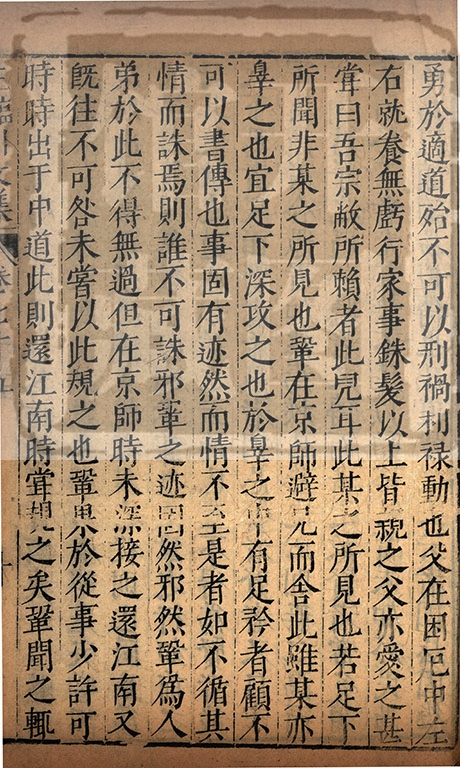 勇於適道殆不可以刑禍利祿動也父在困厄中左
右就養無虧行家事銖髮以上皆親之父亦愛之甚
甞曰吾宗敝所賴者此兒耳此某之所見也若足下
所聞非某之所見也鞏在京師避兄而舍此雖某亦
辠之也宜足下深攻之也於辠之中有足矜者顧不
可以書傳也事固有迹然而情不至是者如不循其
情而誅焉則誰不可誅邪鞏之迹固然邪然鞏爲人
弟於此不得無過但在京師時未深接之還江南又
旣往不可咎未嘗以此規之也鞏果於從事少許可
時時出于中道此則還江南時甞規之矣鞏聞之輒